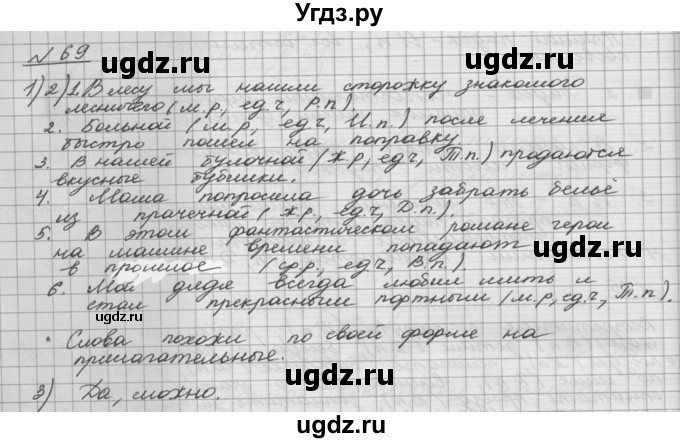 Угдз.ру
№ 69
1) 2) 1. В лесу мы нашли сторожку знакомого
лесничего (м.р, ед.ч, Р.п.).
2. Больной (м.р, ед.ч, И.п.) после лечения
быстро пошел на поправку.
3. В нашей булочной (ж.р, ед.ч, Т.п.) продаются
вкусные бублики.
4. Мама попросила дочь забрать бельё
из прачечной (ж.р., ед.ч, Д.п.).
5. В этом фантастическом романе герои
на машине времени попадают
в прошлое (ср.р., ед.ч, В.п.).
6. Мой дядя всегда любил шить и
стал прекрасным портным (м.р, ед.ч, Т.п).
• Слова похожи по своей форме на
прилагательные.
3) Да, можно.
ugdz.ru
ugdz.ru
ugdz.ru
ugdz.ru
ugdz.ru
ugdz.ru
ugdz.ru
ugdz.ru
ugdz.ru
ugdz.ru
ugdz.ru